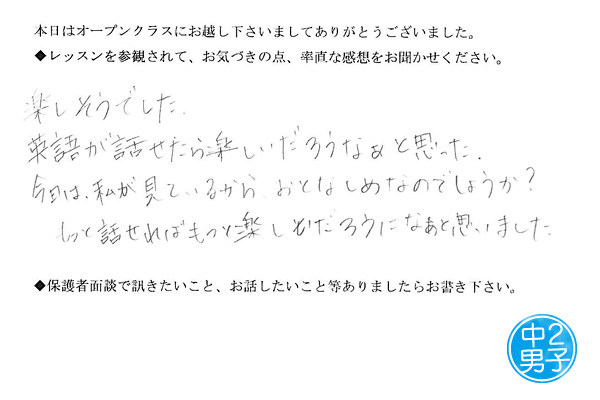 本日はオープンクラスにお越し下さいましてありがとうございました。
◆レッスンを参観されて、お気づきの点、率直な感想をお聞かせください。
楽しそうでした.
英語が話せたら楽しいだろうなぁと思った.
今日は、私が見ているから、おとなしめなのでしょうか?
もっと話せればもっと楽しいだろうになあと思いました.
◆保護者面談で訊きたいこと、お話したいこと等ありましたらお書き下さい。
中2
男子